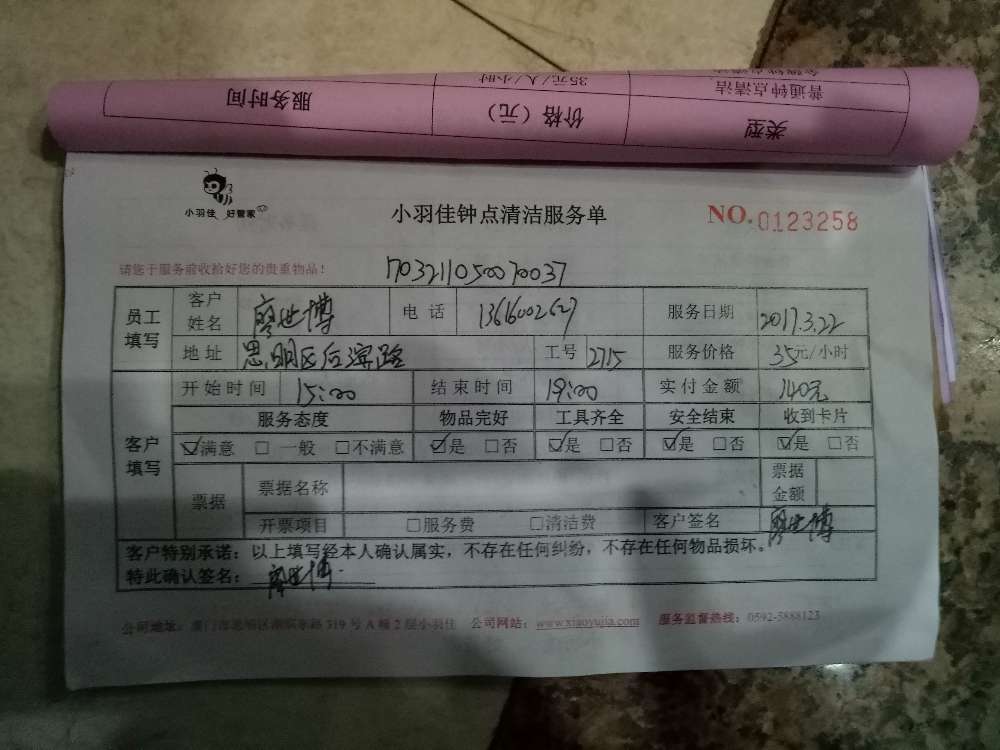 服务时间 价格（元） 类型
35元/人/小时 普通钟点清洁
小羽佳 好管家
小羽佳钟点清洁服务单
NO.0123258
请您于服务前收拾好您的贵重物品！
1703211050070037
员工填写 客户姓名 廖世博 电话 13616002627 服务日期 2017.3.22
地址 思明区后滨路 工号 2715 服务价格 35元/小时
客户填写 开始时间 15:00 结束时间 19:00 实付金额 140元
服务态度 物品完好 工具齐全 安全结束 收到卡片
☑满意 □一般 □不满意 ☑是 □否 ☑是 □否 ☑是 □否 ☑是 □否
票据 票据名称 票据金额
开票项目 □服务费 □清洁费 客户签名 廖世博
客户特别承诺：以上填写经本人确认属实，不存在任何纠纷，不存在任何物品损坏。
特此确认签名：廖世博
公司地址：厦门市思明区湖滨东路319号A幢2层小羽佳 公司网站：www.xiaoyujia.com 服务监督热线：0592-5888123